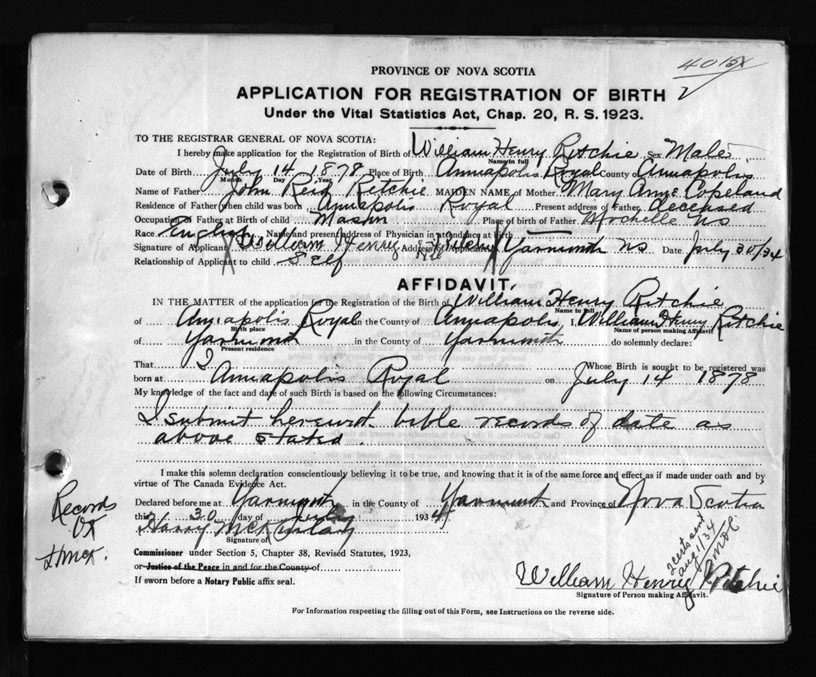 PROVINCE OF NOVA SCOTIA
APPLICATION FOR REGISTRATION OF BIRTH
Under the Vital Statistics Act, Chap. 20, R. S. 1923.
TO THE REGISTRAR GENERAL OF NOVA SCOTIA:
I hereby make application for the Registration of Birth of William Henry Ritchie Sex Male
Name in full
Date of Birth July 14 1878 Place of Birth Annapolis Royal County Annapolis
Month Day Year
Name of Father John Reid Ritchie MAIDEN NAME of Mother Mary Ann Copeland
Residence of Father when child was born Annapolis Royal Present address of Father deceased
Occupation of Father at Birth of child Mason Place of birth of Father Mochelle NS
Race English Name and present address of Physician in attendance at birth
Signature of Applicant William Henry Ritchie Address of Applicant Yarmouth NS Date July 30/34
Relationship of Applicant to child Self
AFFIDAVIT.
IN THE MATTER of the application for the Registration of the Birth of William Henry Ritchie
Name in full
of Annapolis Royal in the County of Annapolis, I, William Henry Ritchie
Birth place Name of person making Affidavit
of Yarmouth in the County of Yarmouth do solemnly declare:
Present residence
That I Whose Birth is sought to be registered was
born at Annapolis Royal on July 14 1878
My knowledge of the fact and date of such Birth is based on the following Circumstances:
I submit herewith bible records of date as
above stated.
I make this solemn declaration conscientiously believing it to be true, and knowing that it is of the same force and effect as if made under oath and by
virtue of The Canada Evidence Act.
Declared before me at Yarmouth, in the County of Yarmouth and Province of Nova Scotia
this 30 day of July 1934.
Harry McKinlay
Signature of
Commissioner under Section 5, Chapter 38, Revised Statutes, 1923,
or Justice of the Peace in and for the County of
If sworn before a Notary Public affix seal.
Records
OK
William Henry Ritchie
Signature of Person making Affidavit.
For Information respecting the filling out of this Form, see Instructions on the reverse side.